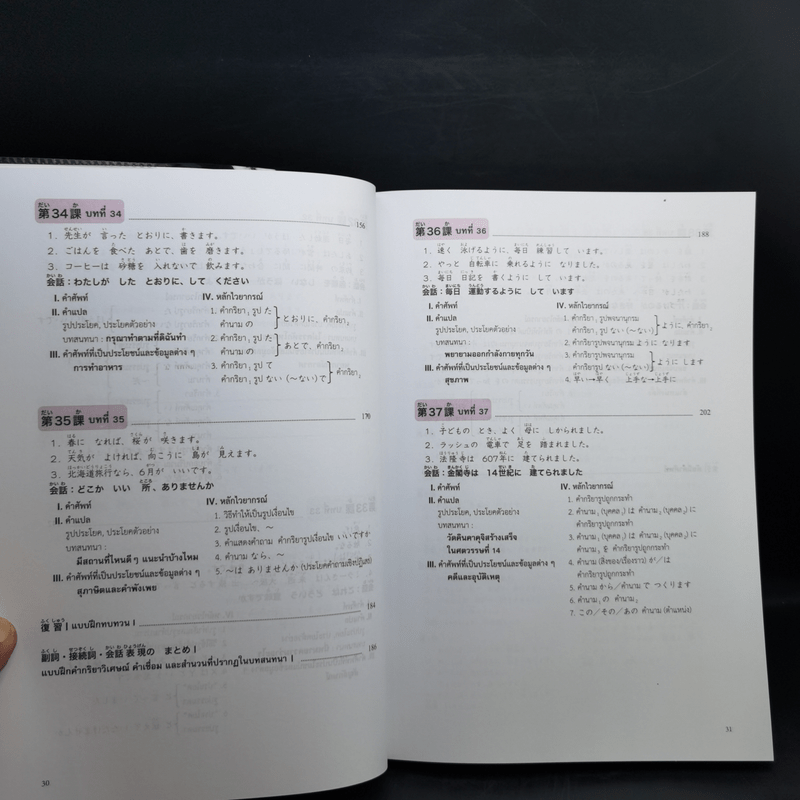 第34課 บทที่ 34 156
1. 先生が 言った とおりに、書きます。
2. ごはんを 食べた あとで、歯を 磨きます。
3. コーヒーは 砂糖を 入れないで 飲みます。
会話：わたしが した とおりに、して ください
I. คำศัพท์
II. คำแปล
รูปประโยค, ประโยคตัวอย่าง
บทสนทนา : กรุณาทำตามที่ดิฉันทำ
III. คำศัพท์ที่เป็นประโยชน์และข้อมูลต่าง ๆ
การทำอาหาร
IV. หลักไวยากรณ์
1. คำกริยา₁ รูป た
คำนาม の
とおりに、คำกริยา₂
2. คำกริยา₁ รูป た
คำนาม の
あとで、คำกริยา₂
3. คำกริยา₁ รูป て
คำกริยา₁ รูป ない (〜ない) で
คำกริยา₂
第35課 บทที่ 35 170
1. 春に なれば、桜が 咲きます。
2. 天気が よければ、向こうに 島が 見えます。
3. 北海道旅行なら、6月が いいです。
会話：どこか いい 所、ありませんか
I. คำศัพท์
II. คำแปล
รูปประโยค, ประโยคตัวอย่าง
บทสนทนา :
มีสถานที่ไหนดี ๆ แนะนำบ้างไหม
III. คำศัพท์ที่เป็นประโยชน์และข้อมูลต่าง ๆ
สุภาษิตและคำพังเพย
IV. หลักไวยากรณ์
1. วิธีทำให้เป็นรูปเงื่อนไข
2. รูปเงื่อนไข、〜
3. คำแสดงคำถาม คำกริยารูปเงื่อนไข いいですか
4. คำนาม なら、〜
5. 〜は ありませんか (ประโยคคำถามเชิงปฏิเสธ)
復習 I แบบฝึกทบทวน I 184
副詞・接続詞・会話表現の まとめ I 186
แบบฝึกคำกริยาวิเศษณ์ คำเชื่อม และสำนวนที่ปรากฏในบทสนทนา I
30
第36課 บทที่ 36 188
1. 速く 泳げるように、毎日 練習して います。
2. やっと 自転車に 乗れるように なりました。
3. 毎日 日記を 書くように して います。
会話：毎日 運動するように して います
I. คำศัพท์
II. คำแปล
รูปประโยค, ประโยคตัวอย่าง
บทสนทนา :
พยายามออกกำลังกายทุกวัน
III. คำศัพท์ที่เป็นประโยชน์และข้อมูลต่าง ๆ
สุขภาพ
IV. หลักไวยากรณ์
1. คำกริยา₁ รูปพจนานุกรม
คำกริยา₁ รูป ない (〜ない)
ように、คำกริยา₂
2. คำกริยารูปพจนานุกรม ように なります
3. คำกริยารูปพจนานุกรม
คำกริยารูป ない (〜ない)
ように します
4. 早い→早く 上手な→上手に
第37課 บทที่ 37 202
1. 子どもの とき、よく 母に しかられました。
2. ラッシュの 電車で 足を 踏まれました。
3. 法隆寺は 607年に 建てられました。
会話：金閣寺は 14世紀に 建てられました
I. คำศัพท์
II. คำแปล
รูปประโยค, ประโยคตัวอย่าง
บทสนทนา :
วัดคินคาคุจิสร้างเสร็จ
ในศตวรรษที่ 14
III. คำศัพท์ที่เป็นประโยชน์และข้อมูลต่าง ๆ
คดีและอุบัติเหตุ
IV. หลักไวยากรณ์
1. คำกริยารูปถูกกระทำ
2. คำนาม₁ (บุคคล₁) は คำนาม₂ (บุคคล₂) に
คำกริยารูปถูกกระทำ
3. คำนาม₁ (บุคคล₁) は คำนาม₂ (บุคคล₂) に
คำนาม₃ を คำกริยารูปถูกกระทำ
4. คำนาม (สิ่งของ/เรื่องราว) が/は
คำกริยารูปถูกกระทำ
5. คำนาม から/คำนาม で つくります
6. คำนาม₁ の คำนาม₂
7. この/その/あの คำนาม (ตำแหน่ง)
31